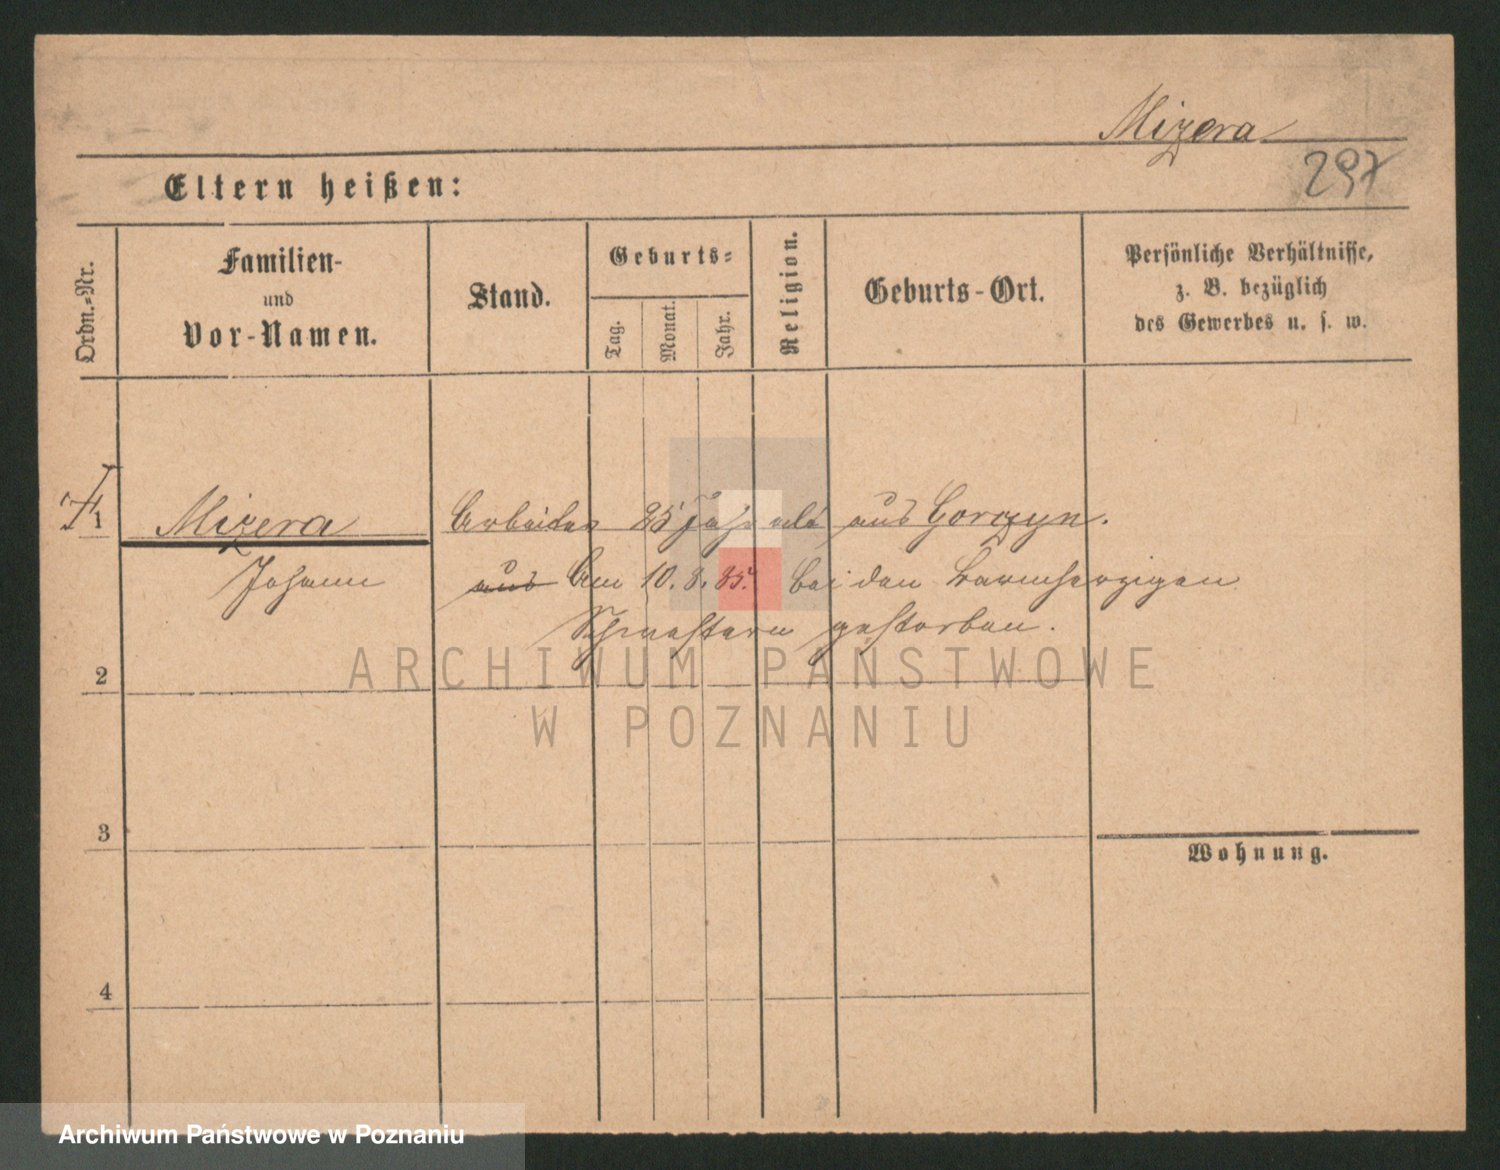 Mizera
297
Eltern heißen:
Ordn.=Nr.
Familien-
und
Vor-Namen.
Stand.
Geburts=
Tag.
Monat.
Jahr.
Religion.
Geburts-Ort.
Persönliche Verhältnisse,
z. B. bezüglich
des Gewerbes u. s. w.
1 Mizera Arbeiter 25 Jahr alt aus Gorczyn.
Johann aus Am 10. 3. 85. bei den barmherzigen
Schwestern gestorben.
ARCHIWUM PAŃSTWOWE
W POZNANIU
2
3
Wohnung.
4
Archiwum Państwowe w Poznaniu